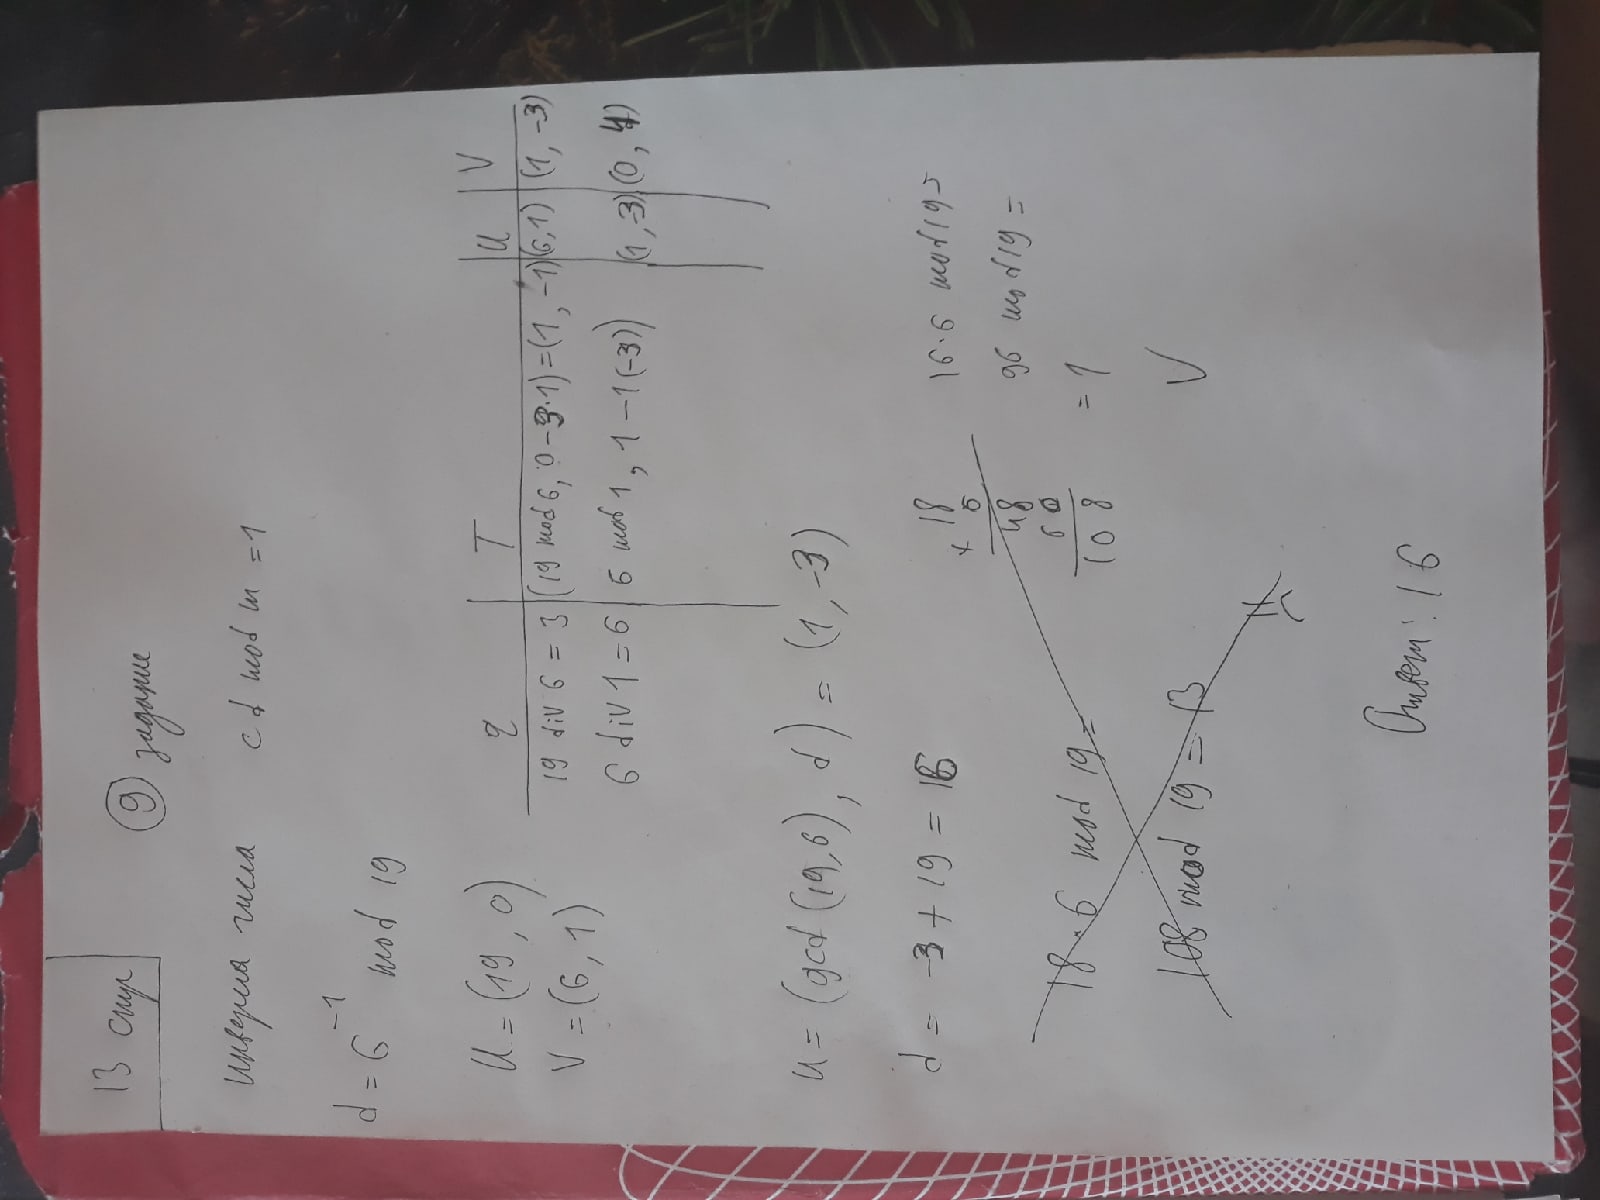 13 стр
9 задание
инверсия числа cd mod m = 1
d = 6^-1 mod 19
U = (19, 0)
V = (6, 1)
q T U V
19 div 6 = 3 (19 mod 6, 0-3·1) = (1, -1) (6,1) (1, -3)
6 div 1 = 6 6 mod 1, 1-1(-3)) (1,-3) (0, 4)
U = (gcd (19,6), d) = (1, -3)
d = -3 + 19 = 16
18
× 6
48
60
108
18·6 mod 19 =
108 mod 19 = 13
16·6 mod 19 =
96 mod 19 =
= 1
V
Ответ: 16